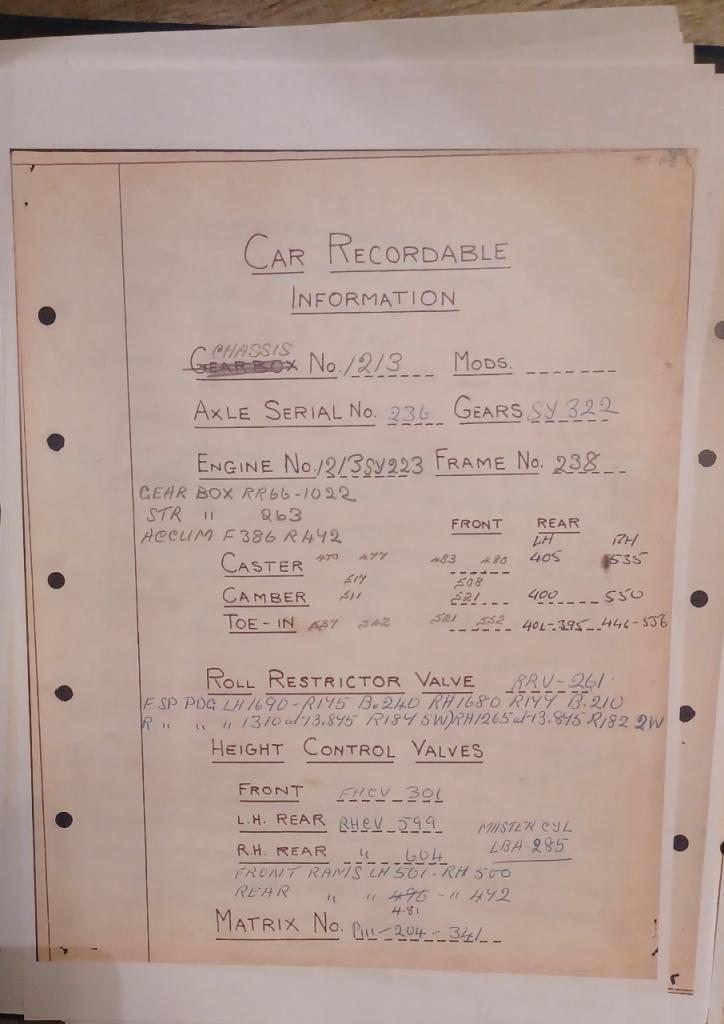 CAR RECORDABLE
INFORMATION
CHASSIS
GEAR BOX No. 1213 MODS.
AXLE SERIAL No. 236 GEARS SY 322
ENGINE No. 1213SY223 FRAME No. 238
GEAR BOX RR66-1022
STR " 263
ACCUM F386 R442
FRONT REAR
LH RH
CASTER 470 477 483 480 405 535
514 508
CAMBER 511 521 400 550
TOE-IN 537 542 521 552 401-395 446-536
ROLL RESTRICTOR VALVE RRV-261
F SP PDG LH1690-R145 B.240 RH1680 R144 B.210
R " " " 1310 at 13.845 R184 5W) RH1265 at 13.845 R182 2W
HEIGHT CONTROL VALVES
FRONT FHCV 301
L.H. REAR RHCV 599
R.H. REAR " 604
MASTER CYL
LBA-285
FRONT RAMS LH 561-RH 500
REAR " " 496 - " 442
481
MATRIX No. P111-204-341